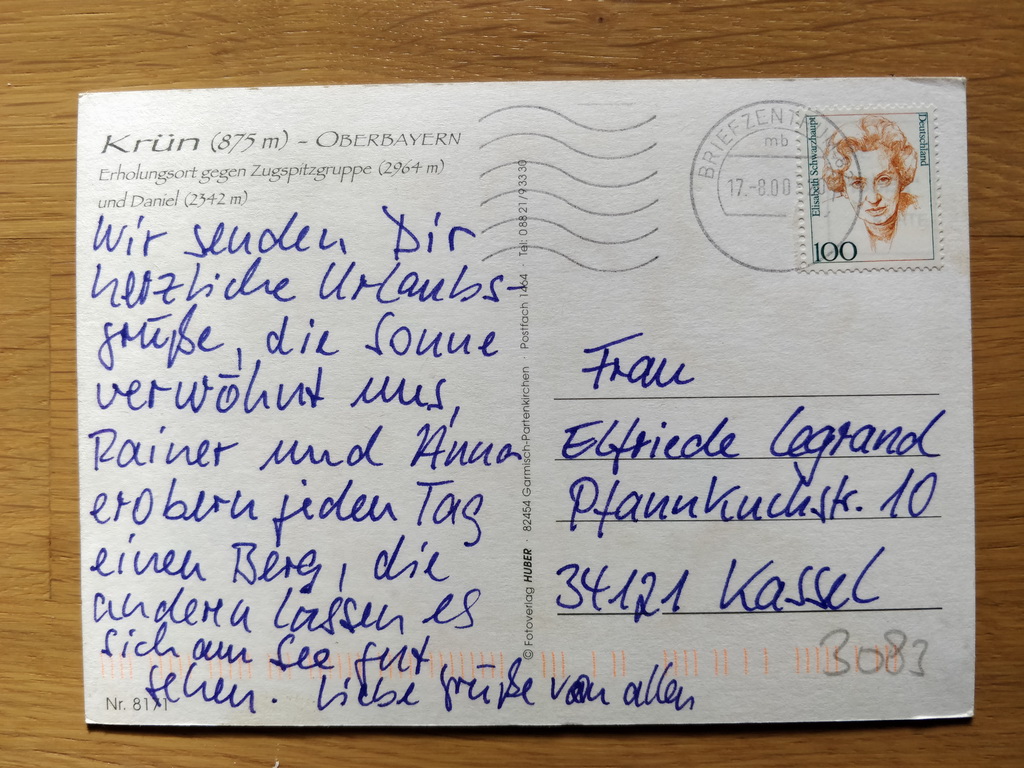 Krün (875 m) - OBERBAYERN
Erholungsort gegen Zugspitzgruppe (2964 m)
und Daniel (2342 m)
Wir senden Dir
herzliche Urlaubs-
grüße, die Sonne
verwöhnt uns,
Rainer und Anna
erobern jeden Tag
einen Berg, die
anderen lassen es
sich am See gut
gehen. Liebe Grüße von allen
Nr. 8171
© Fotoverlag HUBER · 82454 Garmisch-Partenkirchen · Postfach 1464 · Tel: 08821/93330
BRIEFZENTRUM
mb
17.-8.00
Elisabeth Schwarzhaupt
Deutschland
100
Frau
Elfriede Legrand
Pfannkuchstr. 10
34121 Kassel
3083